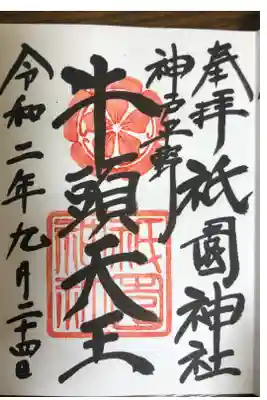 奉拝
祇園神社
神戸平野
牛頭天王
令和二年九月二十四日
祇園神社